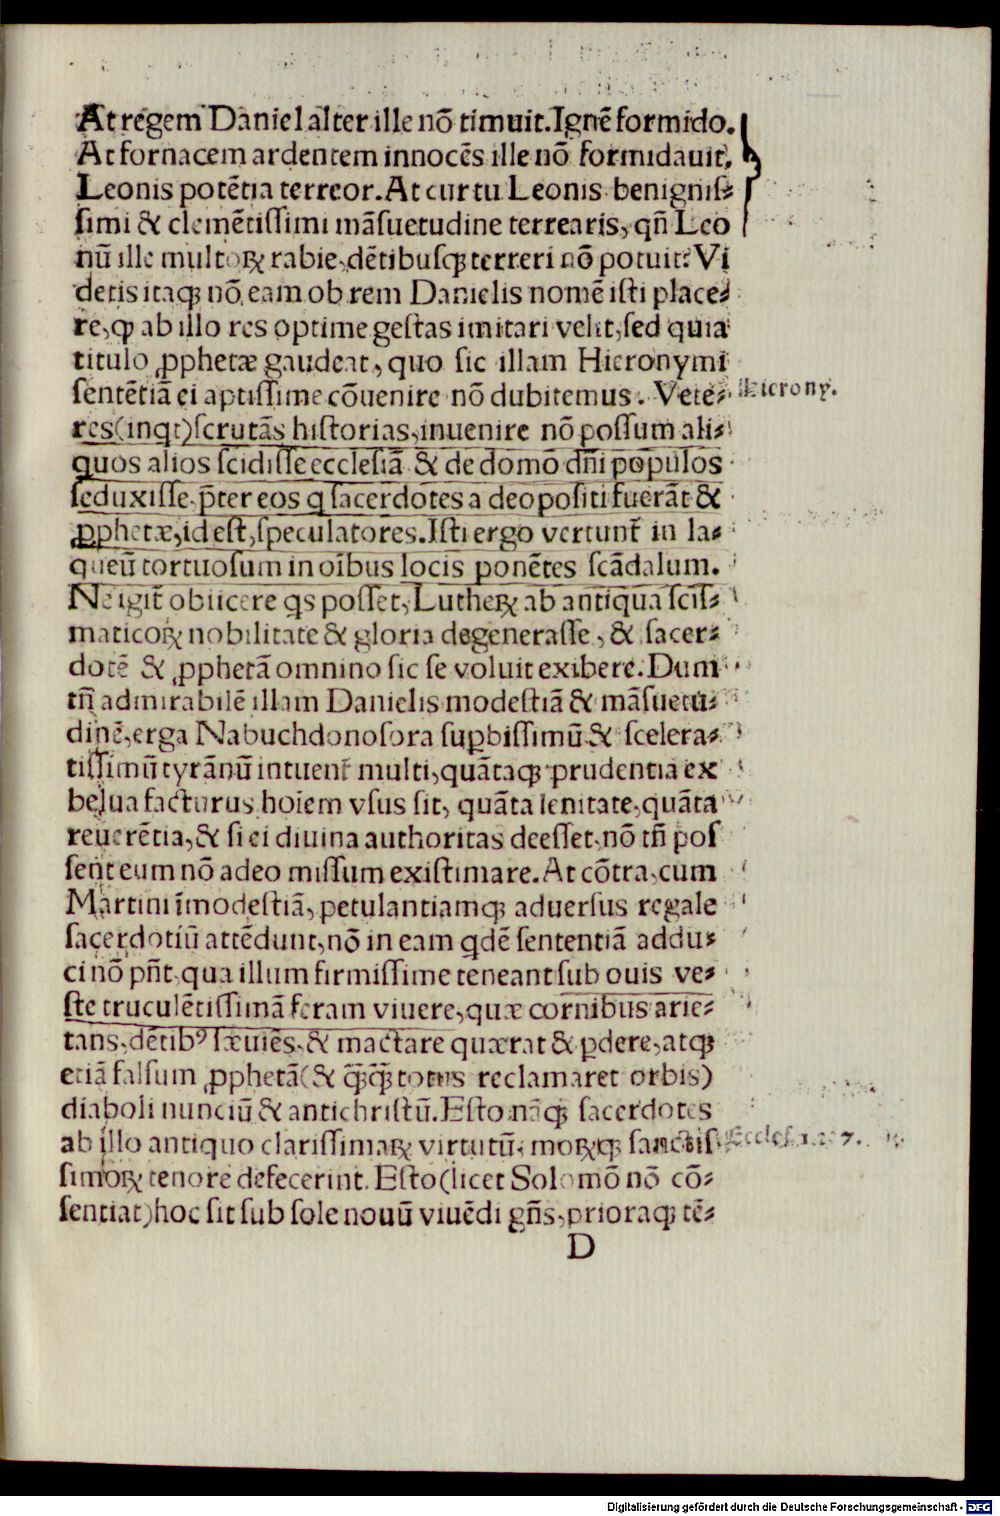 At regem Daniel alter ille nō timuit. Ignē formido.
At fornacem ardentem innocēs ille nō formidavit.
Leonis potētia terreor. At cur tu Leonis benignis⸗
simi & clemētissimi māsuetudine terrearis, qn̄ Leo
nū ille multoꝝ rabie, dētibusqꝫ terreri nō potuit? Vi
detis itaqꝫ nō eam ob rem Danielis nomē isti place⸗
re, qp ab illo res optime gestas imitari velit, sed quia
titulo ꝓphetæ gaudeat, quo sic illam Hieronymi
sentētiā ei aptissime cōuenire nō dubitemus. Vete⸗ Hierony.
res (inqt) scrutās historias, inuenire nō possum ali⸗
quos alios scidisse ecclesiā & de domo dn̄i populos
seduxisse, p̄ter eos q sacerdotes a deo positi fuerāt &
ꝓphetæ, id est, speculatores. Isti ergo vertunt̄ in la⸗
queū tortuosum in oībus locis ponētes scādalum.
Ne igit̄ obiicere qs posset, Lutheꝝ ab antiqua scis⸗
maticoꝝ nobilitate & gloria degenerasse, & sacer⸗
dotē & ꝓphetā omnino sic se voluit exibere. Dum
tn̄ admirabilē illam Danielis modestiā & māsuetu⸗
dinē, erga Nabuchdonosora suꝑbissimū & scelera⸗
tissimū tyrānū intuent̄ multi, quātaqꝫ prudentia ex
belua facturus hoīem vsus sit, quāta lenitate, quāta
reuerētia, & si ei diuina authoritas deesset, nō tn̄ pos
sent eum nō adeo missum existimare. At cōtra, cum
Martini īmodestiā, petulantiamqꝫ aduersus regale
sacerdotiū attēdunt, nō in eam qdē sententiā addu⸗
ci nō pn̄t, qua illum firmissime teneant sub ouis ve⸗
ste truculētissimā feram viuere, quæ cornibus arie⸗
tans, dētibꝰ sæuiēs, & mactare quærat & ꝑdere, atqꝫ
etiā falsum ꝓphetā (& qꝗ̄qꝗ̄ totus reclamaret orbis)
diaboli nunciū & antichristū. Esto nāqꝫ sacerdotes
ab illo antiquo clarissimaꝝ virtutū, moꝝqꝫ sanctis Eccles. 1. 7.
simoꝝ tenore defecerint. Esto (licet Solomō nō cō⸗
sentiat) hoc sit sub sole nouū viuēdi gn̄s, prioraqꝫ tē⸗
D
Digitalisierung gefördert durch die Deutsche Forschungsgemeinschaft - DFG